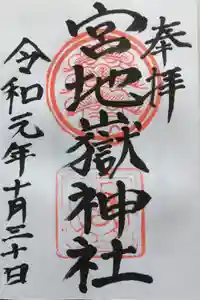 奉拝
宮地嶽神社
令和元年十月二十日